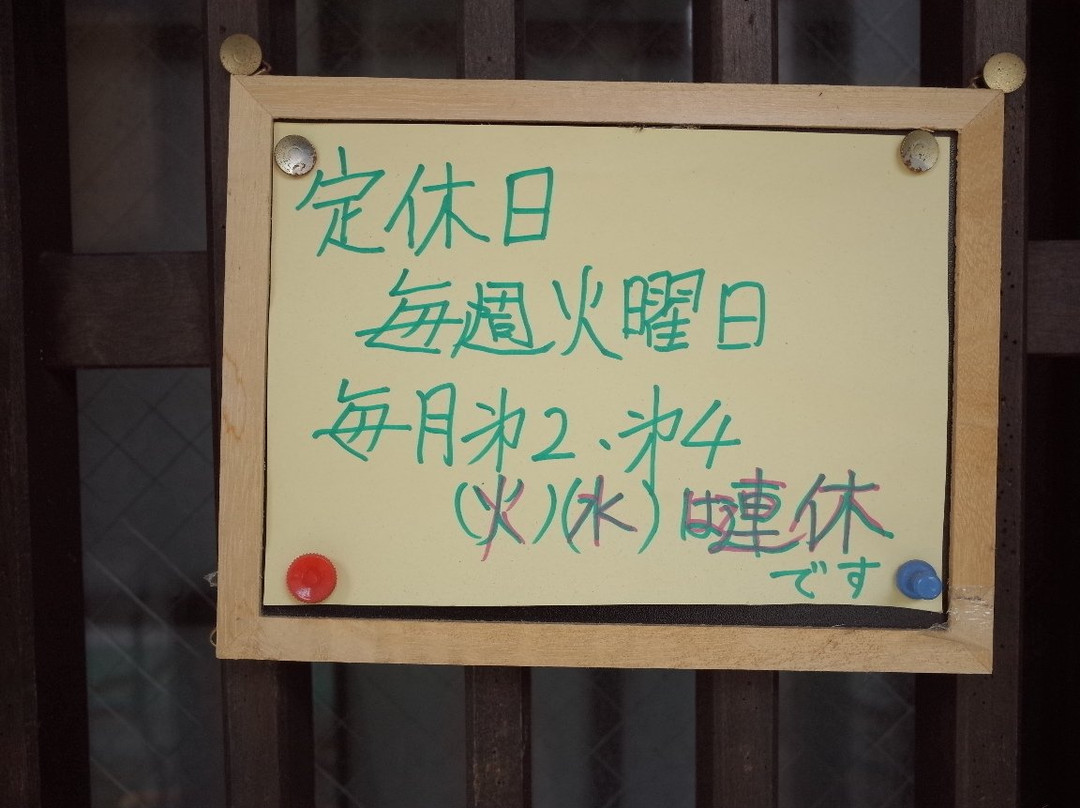 定休日
毎週火曜日
毎月第2、第4
(火)(水)は連休
です